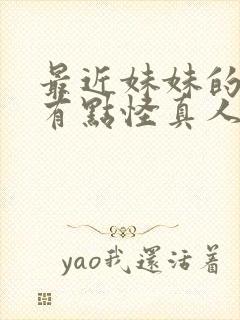 最近妹妹的
有點怪真人
yao我還活着